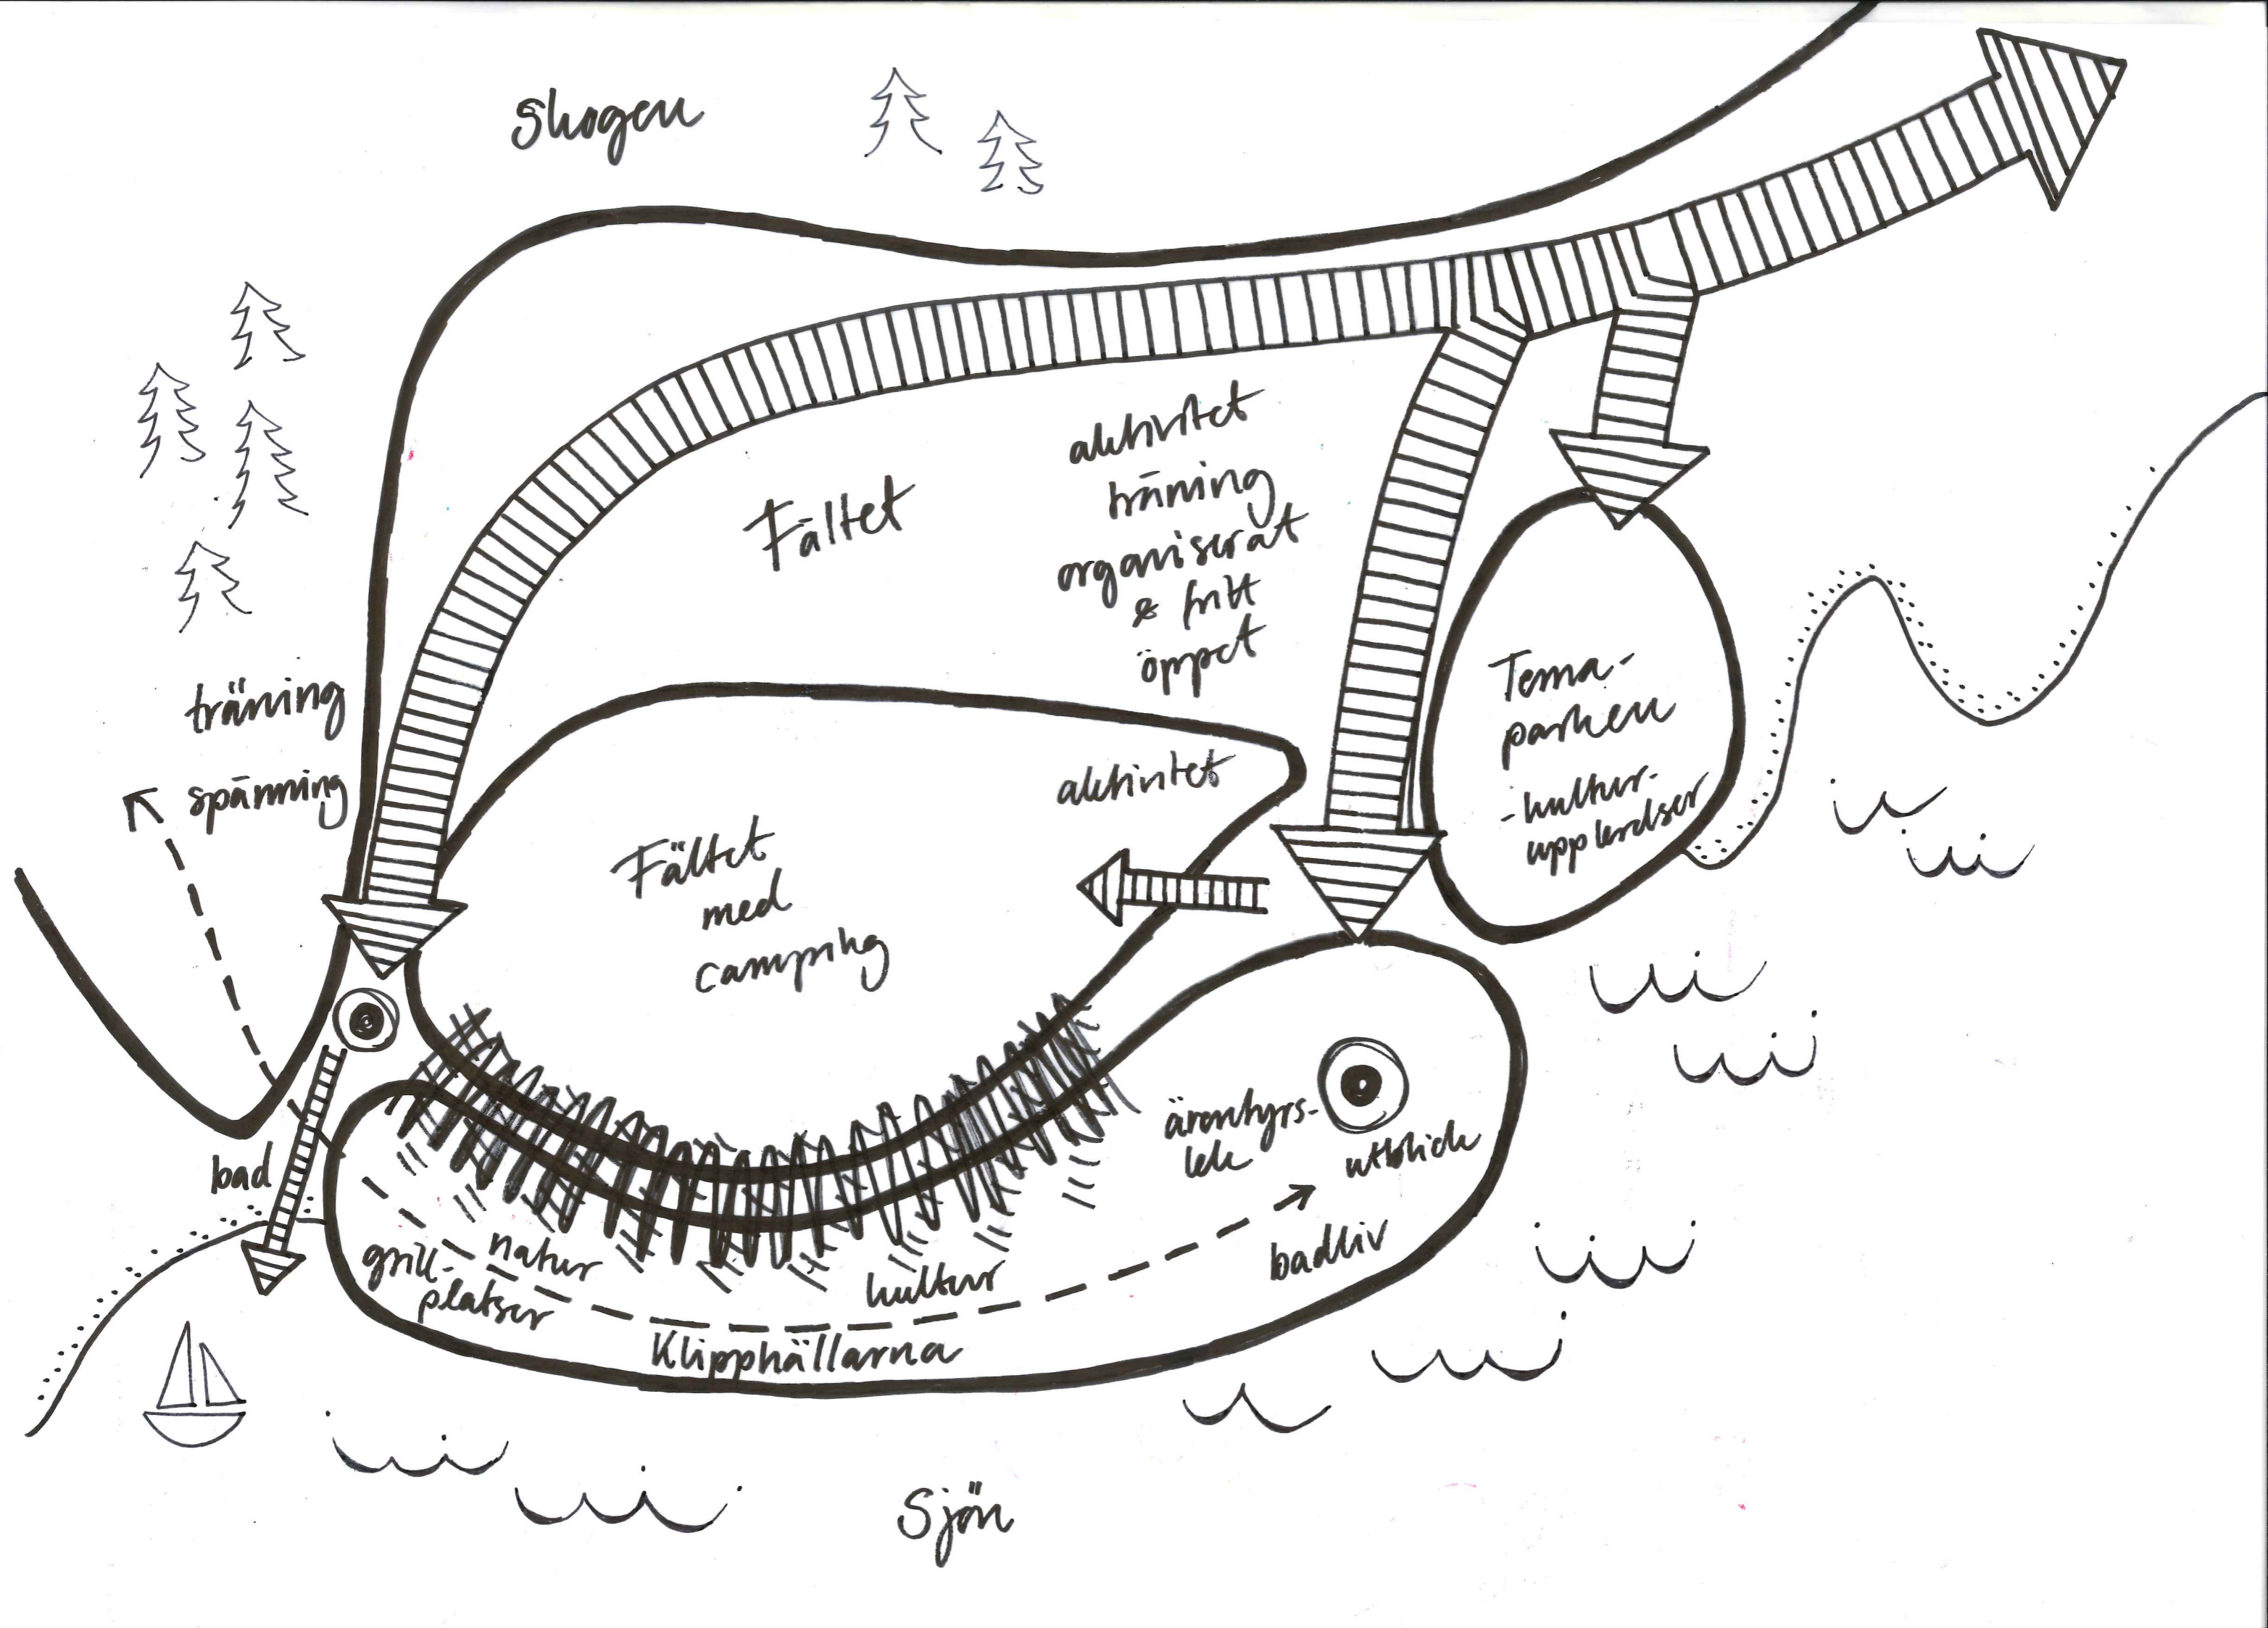 Skogen
aktivitet
träning
organiserat
& fritt
öppet
Fältet
träning
spänning
Tema-
parken
-kultur-
upplevelser
aktivitet
Fältet
med
camping
bad
äventyrs-
lek
utblick
badliv
grill-
platser
natur
kultur
Klipphällarna
Sjön